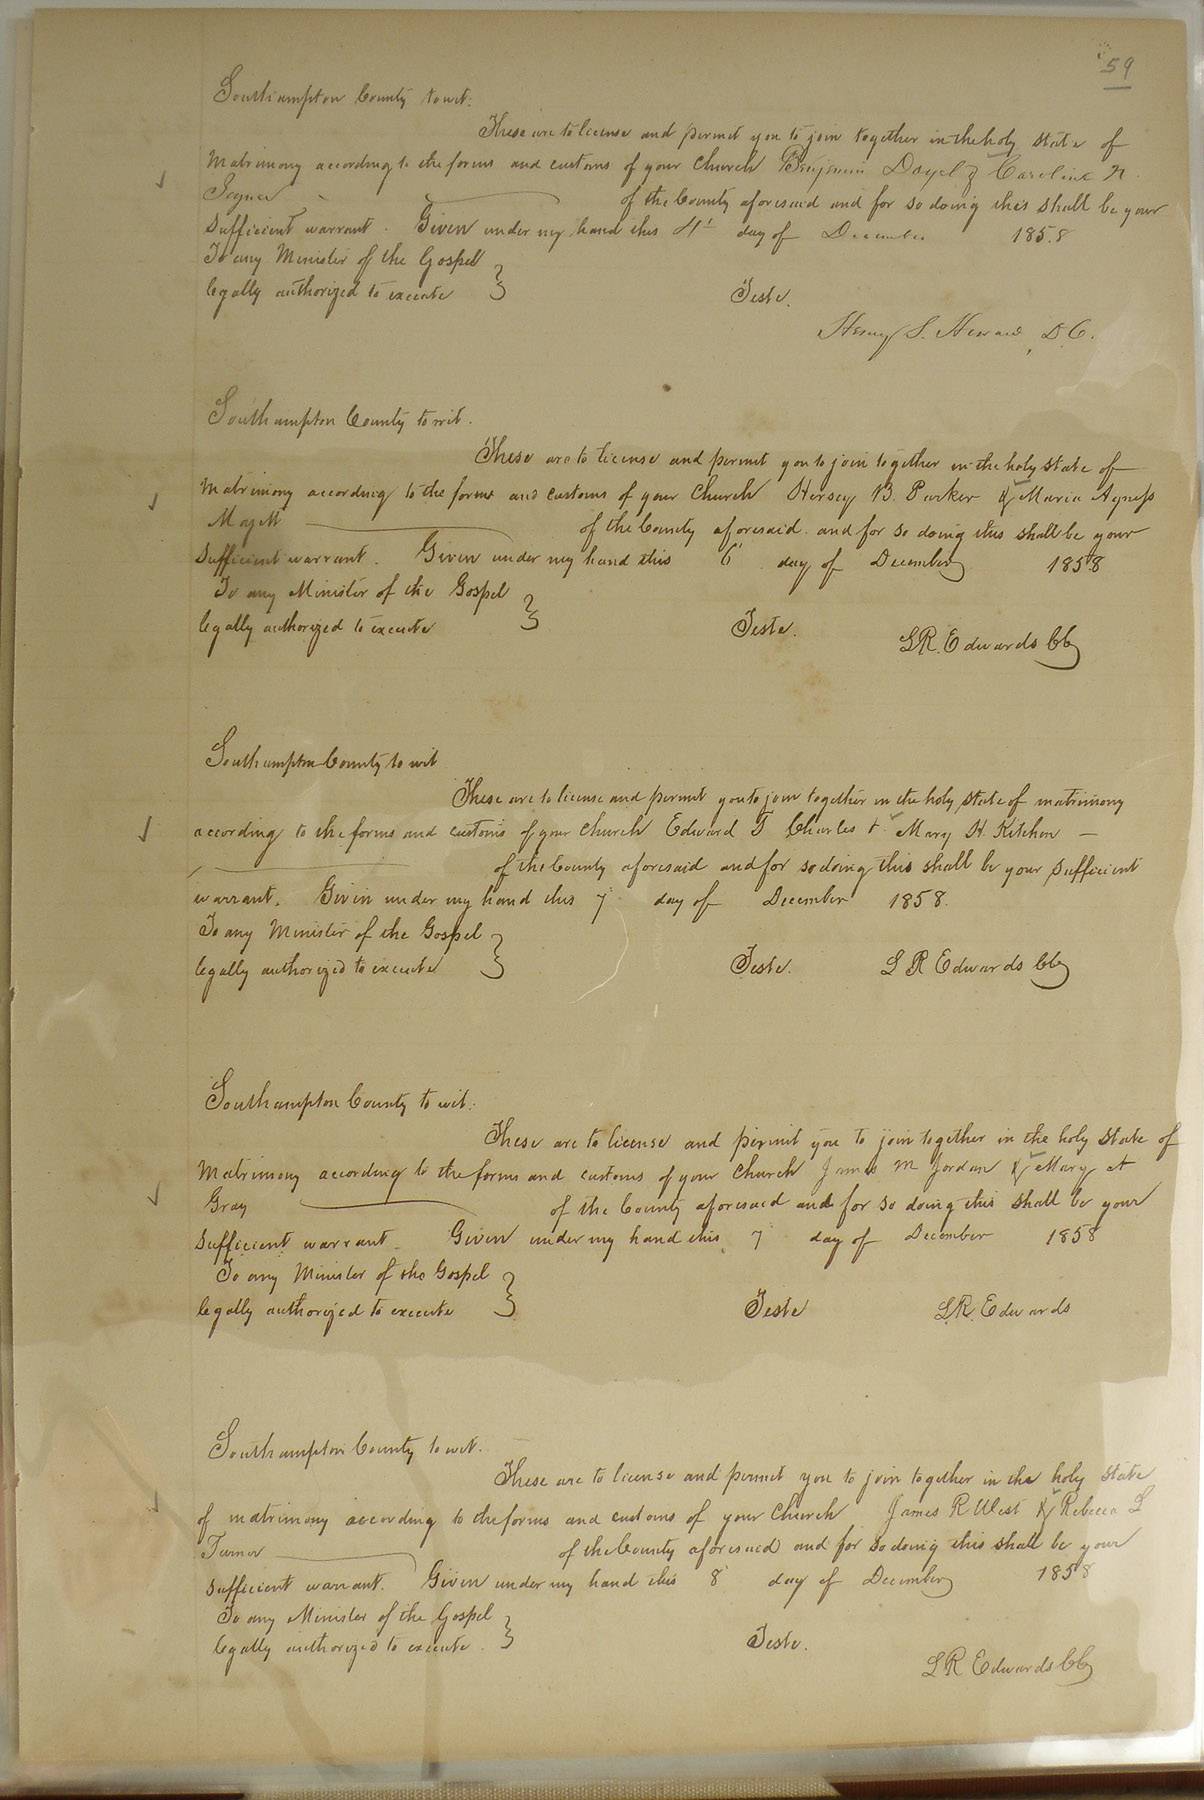 59
Southampton County to wit:
These are to license and permit you to join together in the holy state of
Matrimony according to the forms and customs of your Church Benjamin Doyel & Caroline N.
of the County aforesaid and for so doing this shall be your
sufficient warrant. Given under my hand this 4' day of December 1858
To any Minister of the Gospel
legally authorized to execute } Teste.
Henry S. D.C.
Southampton County to wit.
These are to license and permit you to join together in the holy state of
Matrimony according to the forms and customs of your Church Hersey B. Parker & Maria Agness
of the County aforesaid and for so doing this shall be your
sufficient warrant. Given under my hand this 6' day of December 1858
To any Minister of the Gospel
legally authorized to execute } Teste. LR. Edwards CC
Southampton County to wit
These are to license and permit you to join together in the holy state of matrimony
according to the forms and customs of your Church Edward T Charles & Mary H. Kitchen —
of the County aforesaid and for so doing this shall be your sufficient
warrant. Given under my hand this 7' day of December 1858.
To any Minister of the Gospel
legally authorized to execute } Teste. L R Edwards CC
Southampton County to wit:
These are to license and permit you to join together in the holy state of
Matrimony according to the forms and customs of your Church James M Jordan & Mary A
Gray of the County aforesaid and for so doing this shall be your
sufficient warrant. Given under my hand this 7' day of December 1858
To any Minister of the Gospel
legally authorized to execute } Teste L.R. Edwards
Southampton County to wit.
These are to license and permit you to join together in the holy state
of matrimony according to the forms and customs of your Church James R West & Rebecca L
Turner of the County aforesaid and for so doing this shall be your
sufficient warrant. Given under my hand this 8' day of December 1858
To any Minister of the Gospel
legally authorized to execute. } Teste.
LR Edwards CC